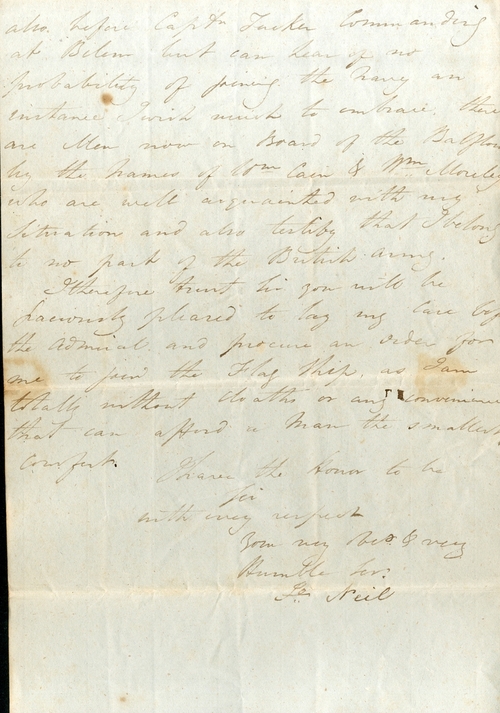 also before Captn Tucker Commanding
at Belem but can hear of no
probability of joining the Navy an
instance I wish much to embrace. there
are Men now on Board of the
by the Names of Wm Cain & Wm Morley
who are well acquainted with my
Situation and also testify that I belong
to no part of the British Army.
I therefore trust Sir you will be
Graciously pleased to lay my Case bef
the Admiral and procure an order for
me to join the Flag Ship. as I am
totally without Cloaths or any convenience
that can afford a Man the smallest
Comfort.
I have the Honor to be
Sir
with every respect
Your very Obt & very
Humble Ser.
Neil